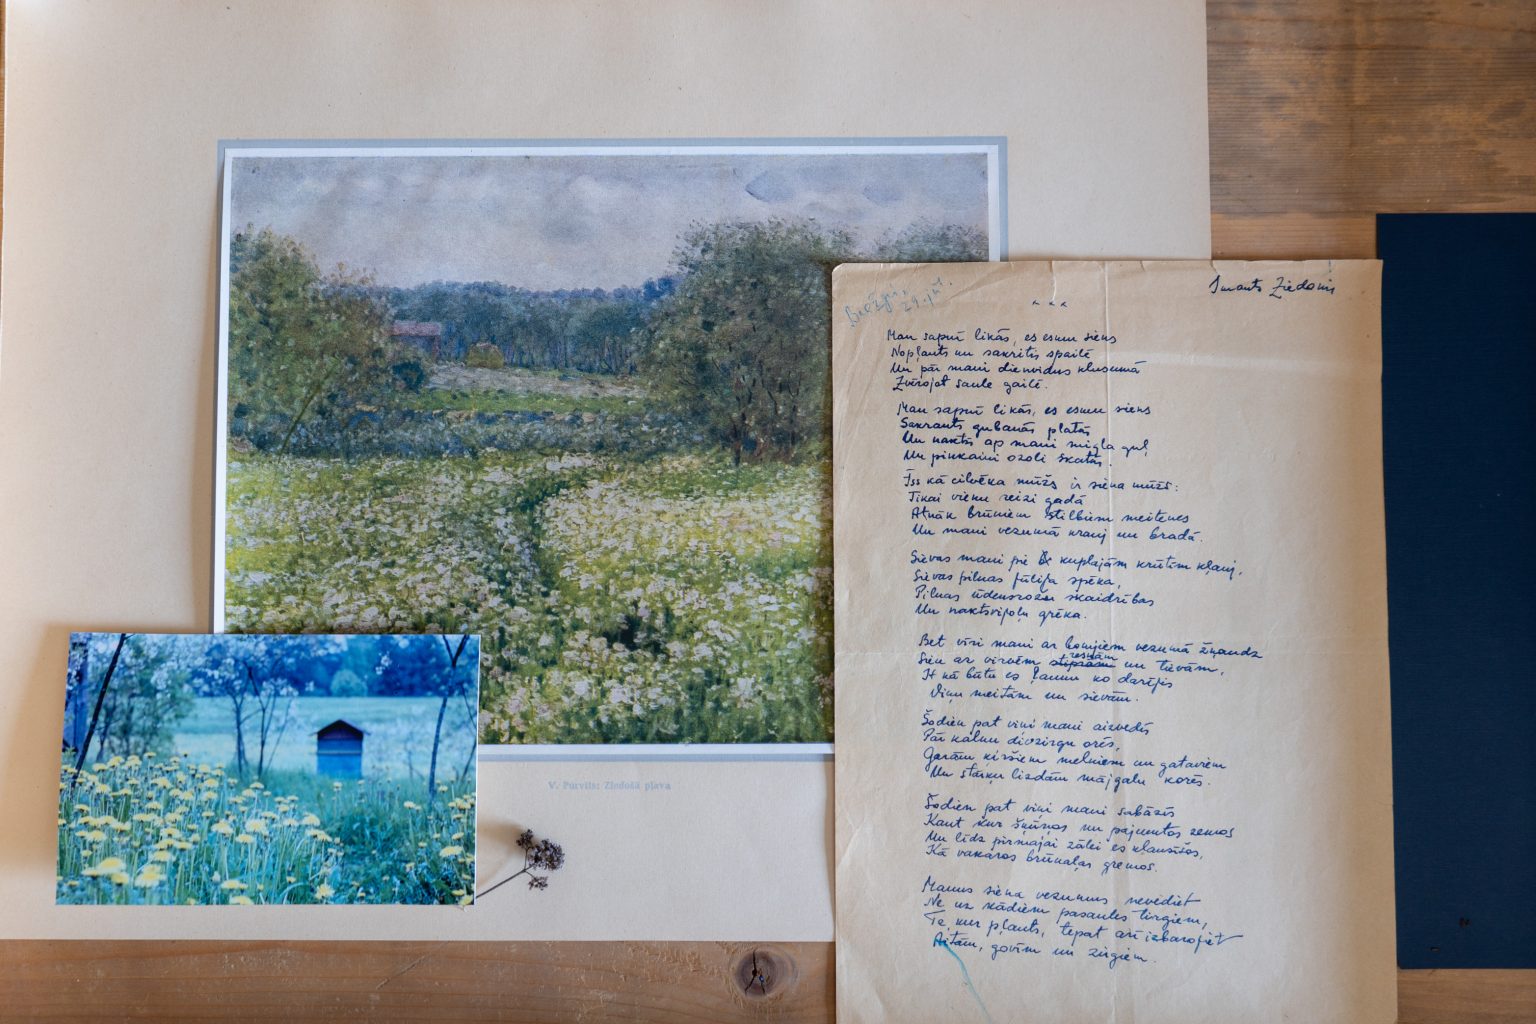 V. Purvīts: Ziedošā pļava
Imants Ziedonis
29. jūl.
* * *
Man sapnī likās, es esmu siens
Nopļauts un sakritis spailē
Un pār mani dienvidus klusumā
Zvērojot saule gailē.
Man sapnī likās, es esmu siens
Sakrauts gubanās platās
Un naktīs ap mani migla guļ
Un pinkaini ozoli skatās.
Īss kā cilvēka mūžs ir siena mūžs:
Tikai vienu reizi gadā
Atnāk brūniem stilbiem meitenes
Un mani vezumā krauj un bradā.
Sievas mani pie kuplajām krūtīm kļauj,
Sievas pilnas jūlija spēka,
Pilnas ūdensrožu skaidrības
Un naktsvijoļu grēka.
Bet vīri mani ar bomjiem vezumā žņaudz
resnām
Sien ar virvēm stiprām un tievām,
It kā būtu es ļaunu ko darījis
Viņu meitām un sievām.
Šodien pat viņi mani aizvedīs
Pār kalnu divzirgu orēs,
Garām ķiršiem melniem un gataviem
Un stārķu līzdām mājgalu korēs.
Šodien pat viņi mani sabāzīs
Kaut kur šķūņos un pajumtos zemos
Un līdz pirmajai zālei es klausīšos,
Kā vakaros brūnaļas gremos.
Manus siena vezumus nevediet
Ne uz kādiem pasaules tirgiem,
Te, kur pļauts, tepat arī izbarojiet
Aitām, govīm un zirgiem.